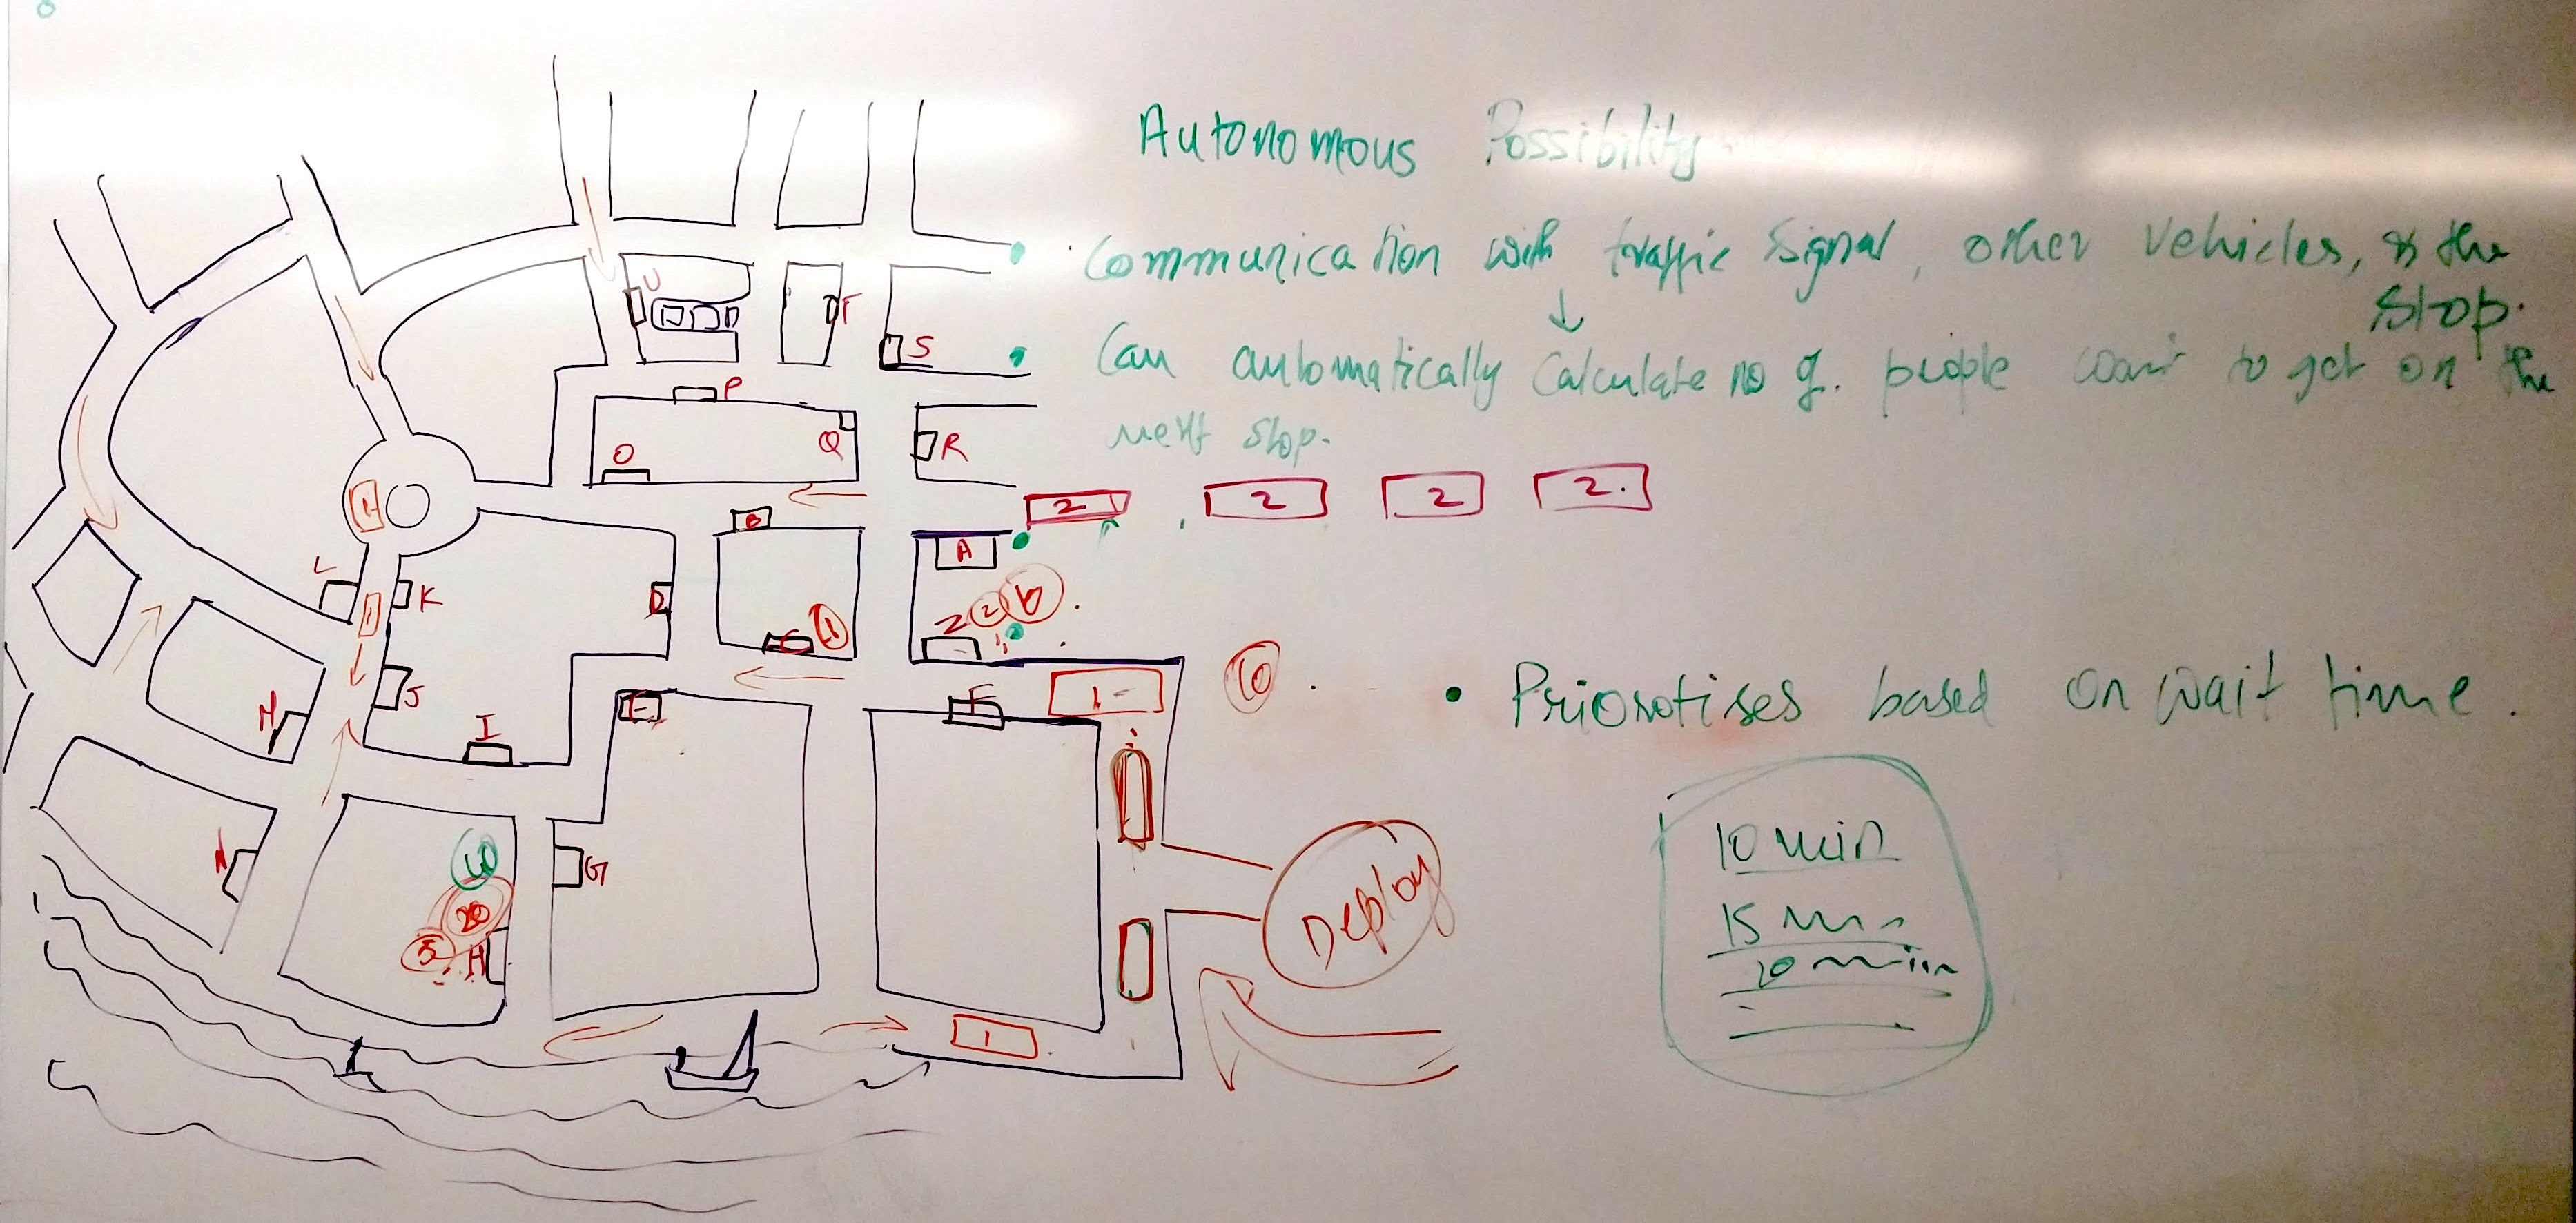 Autonomous Possibility
• Communication with traffic signal, other vehicles, & the
stop.
↓
• Can automatically Calculate no of. people want to get on the
next stop.
2 2 2 2.
• Priorotises based on wait time.
10 min
15 min
20 min
Deploy
U
T
S
P
O
Q
R
B
A
L
K
D
C
1
2
2
6
10
J
M
I
E
F
1
N
G
10
20
5
H
1
1
1